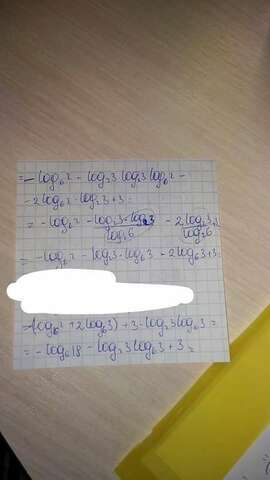 = -log₆2 - log₂3 log₂3 log₆2 -
- 2log₆2 · log₂3 + 3 =
= -log₆2 - log₂3 · log₂3 / log₂6 - 2 log₂3 / log₂6 + 3
= -log₆2 - log₂3 · log₆3 - 2log₆3 + 3
-(log₆2 + 2log₆3) + 3 - log₂3 log₆3 =
= -log₆18 - log₂3 log₆3 + 3 =